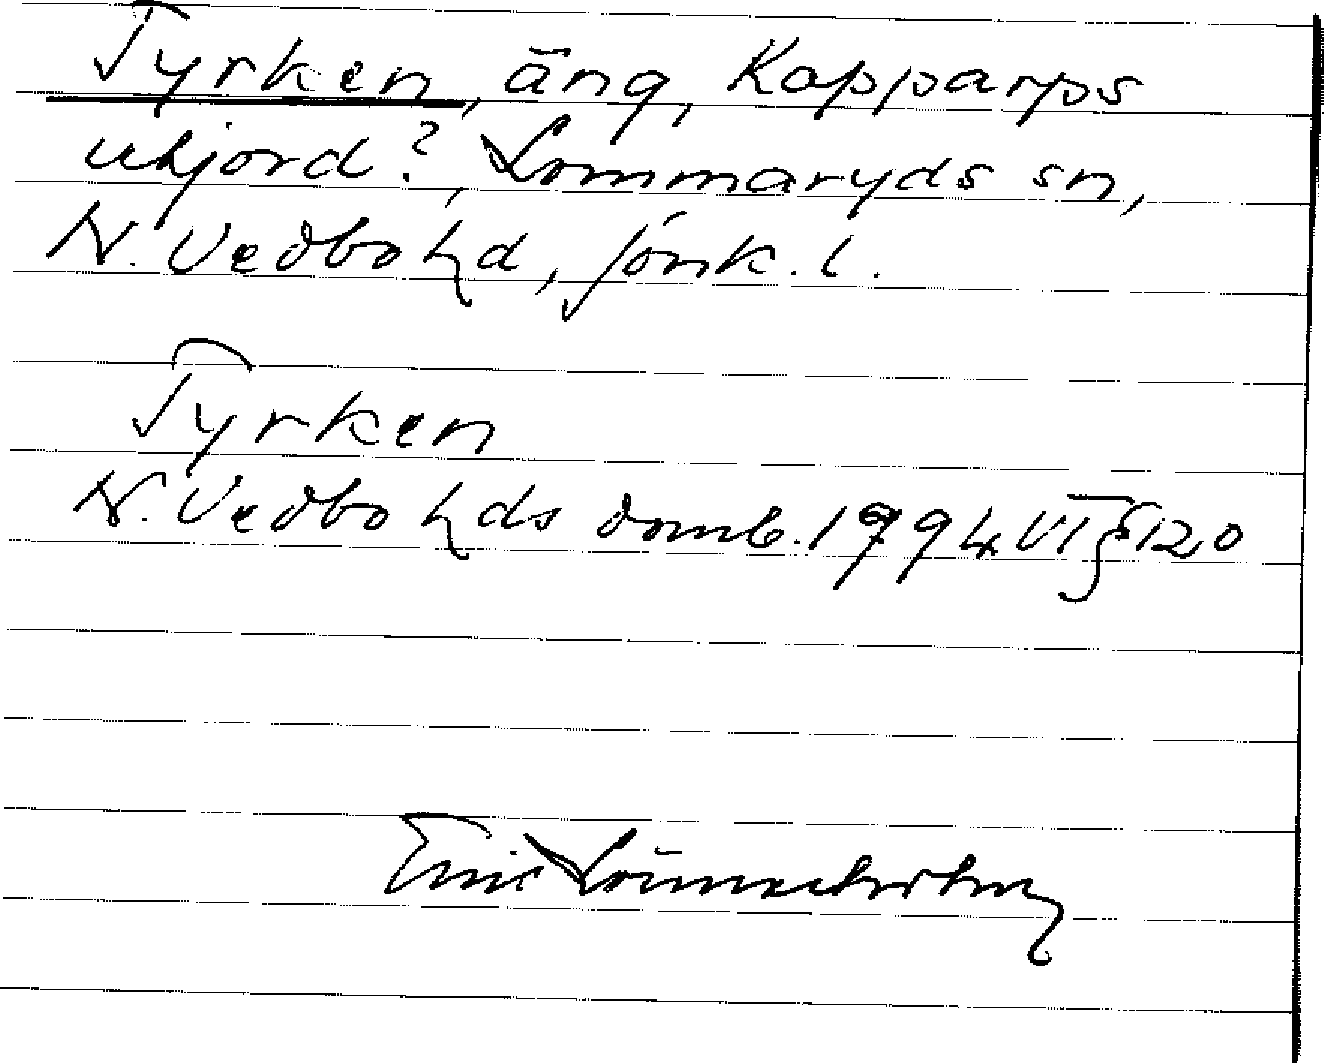 Tyrken, äng, Kapparps
utjord?, Lommaryds sn,
N. Vedbo hd, Jönk. l.
Tyrken
N. Vedbo hds domb. 1794 VI § 120
Eric